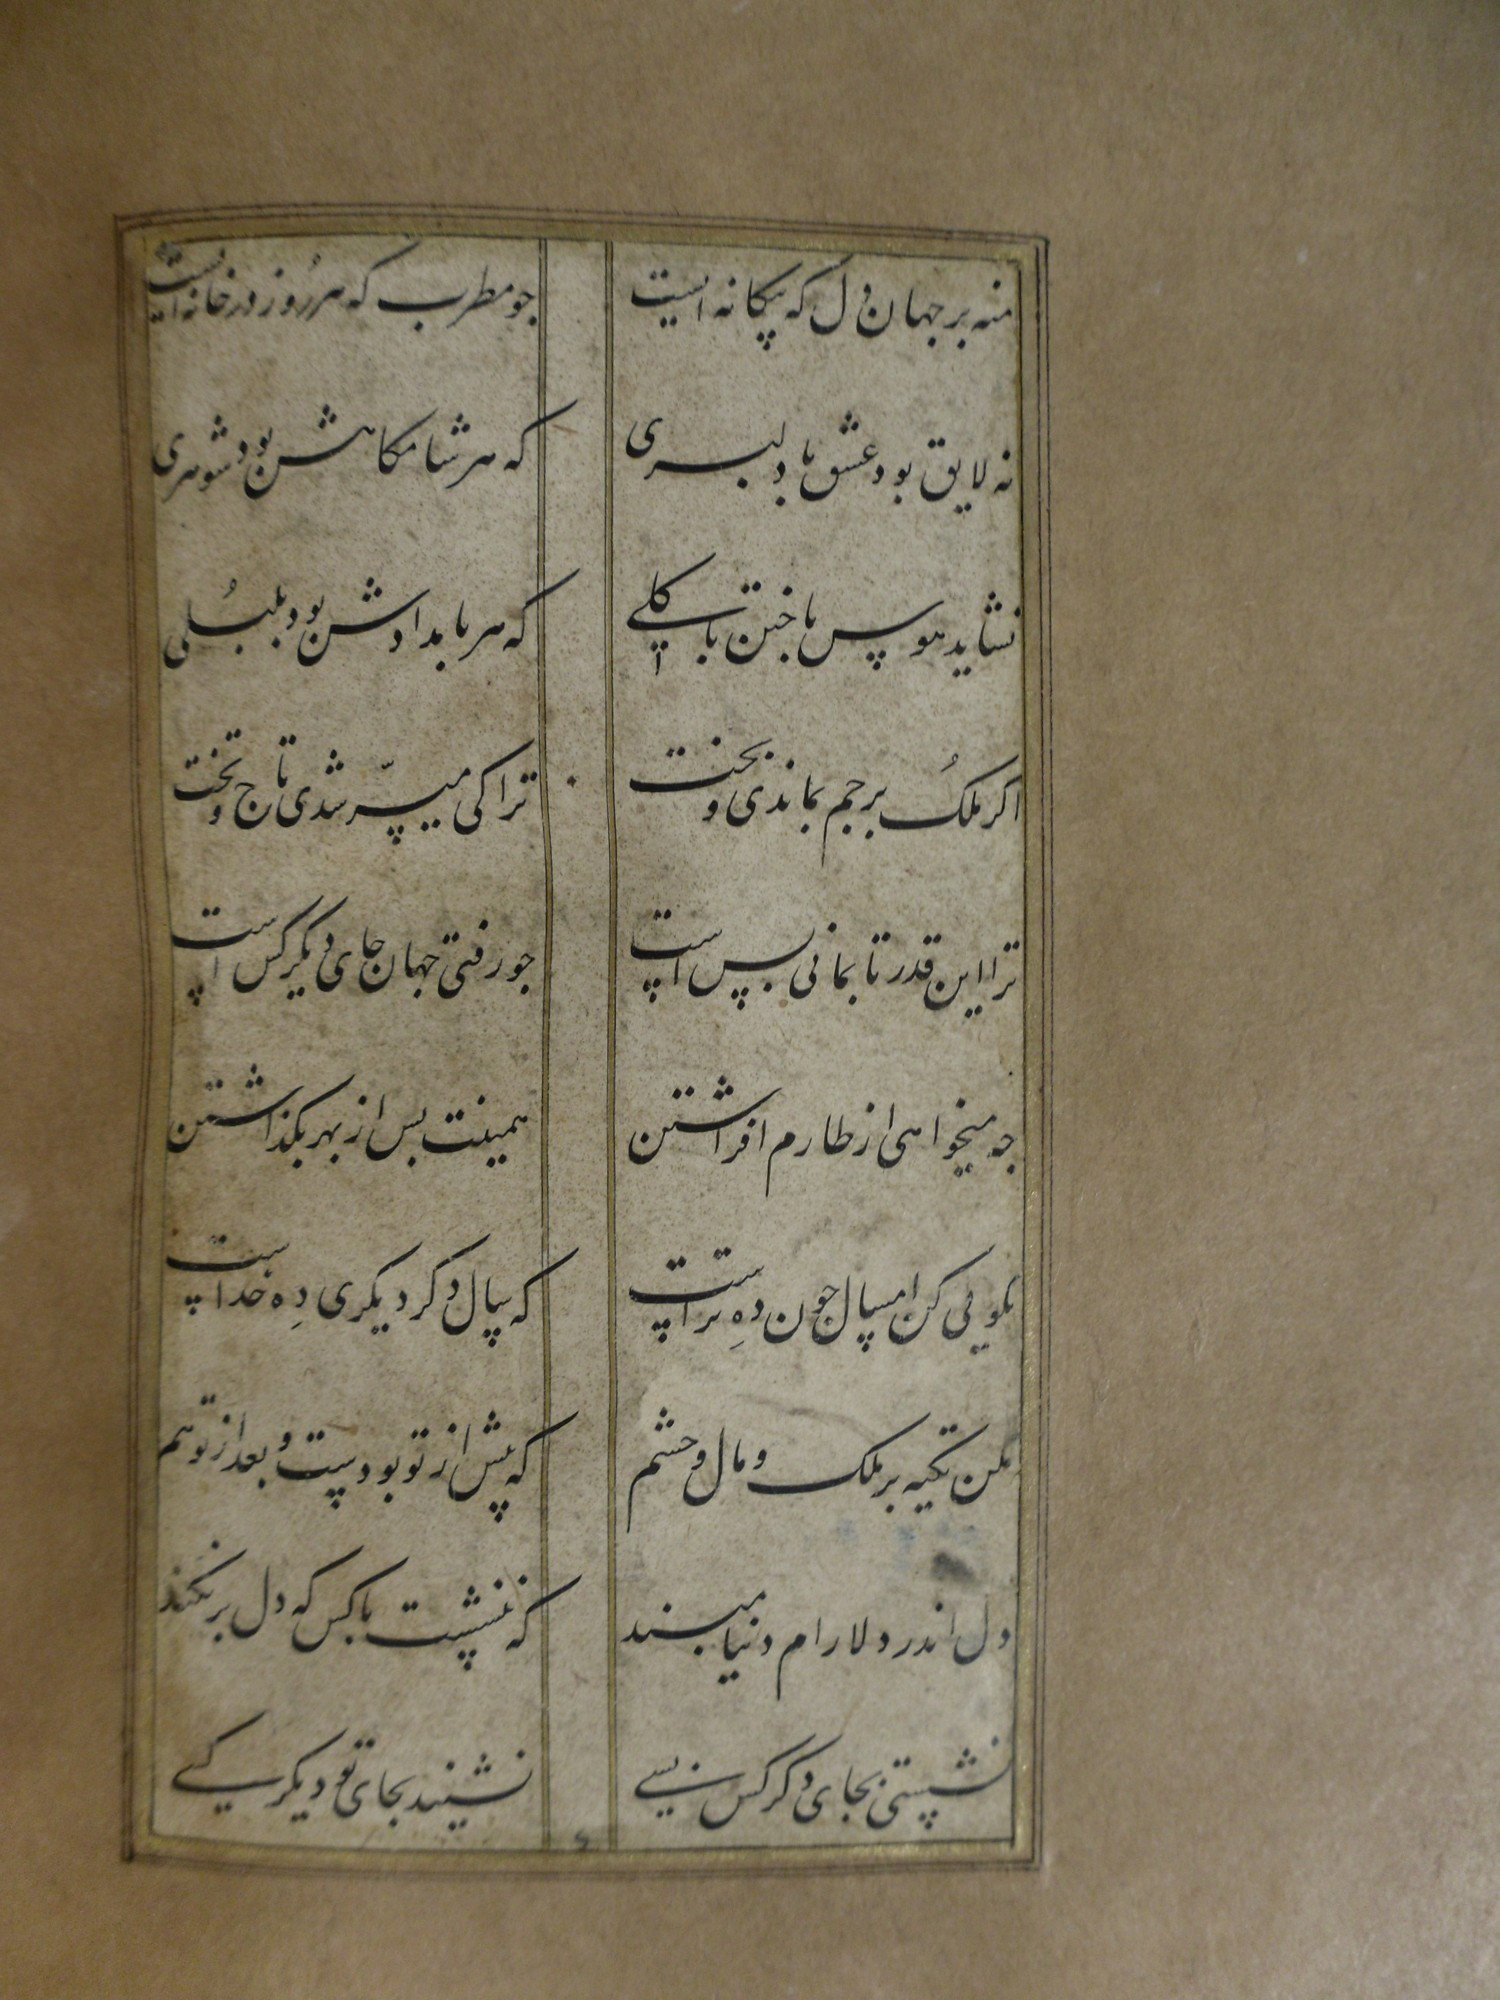 منه بر جهان دل که بیگانه ایست جو مطرب که هر روز در خانه ایست
نه لایق بود عشق با دلبری که هر شامگاهش بود شوهری
نشاید هوس باختن با گلی که هر بامدادش بود بلبلی
اکر ملک بر جم بماندی و بخت ترا کی میسّر شدی تاج و تخت
ترا این قدر تا بمانی بس است جو رفتی جهان جای دیکر کس است
جه میخواهی از طارم افراشتن همینت بس از بهر بکذاشتن
نکویی کن امسال جون دهِ تراست که سال دکر دیکری دِه خداست
مکن تکیه بر ملک و مال و حشم که پیش از تو بودست و بعد از تو هم
دل اندر دلارام دنیا مبند که ننشست با کس که دل بر نکند
نشستی بجای دکر کس بسی نشیند بجای تو دیکر کسی